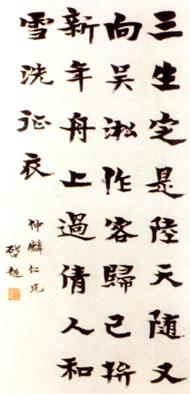 三生定是陸天隨又
向吳淞作客歸已拚
新年舟上過倩人和
雪洗征衣
仲麟仁兄
啓超